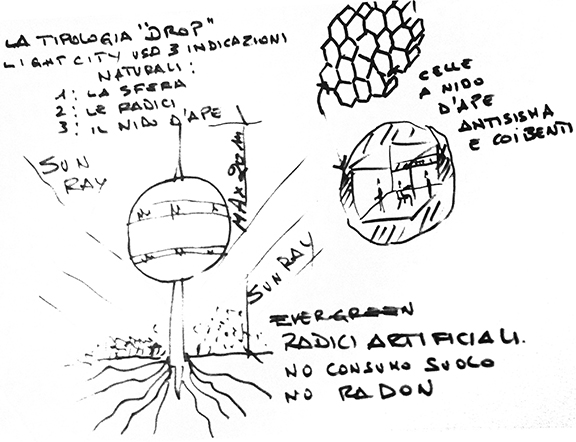 LA TIPOLOGIA "DROP"
LIGHT CITY USA 3 INDICAZIONI
NATURALI:
1: LA SFERA
2: LE RADICI
3: IL NIDO D'APE
CELLE
A NIDO
D'APE
ANTISISMA
E COIBENTI
SUN
RAY
MAX 20 M
SUN RAY
EVERGREEN
RADICI ARTIFICIALI.
NO CONSUMO SUOLO
NO RADON